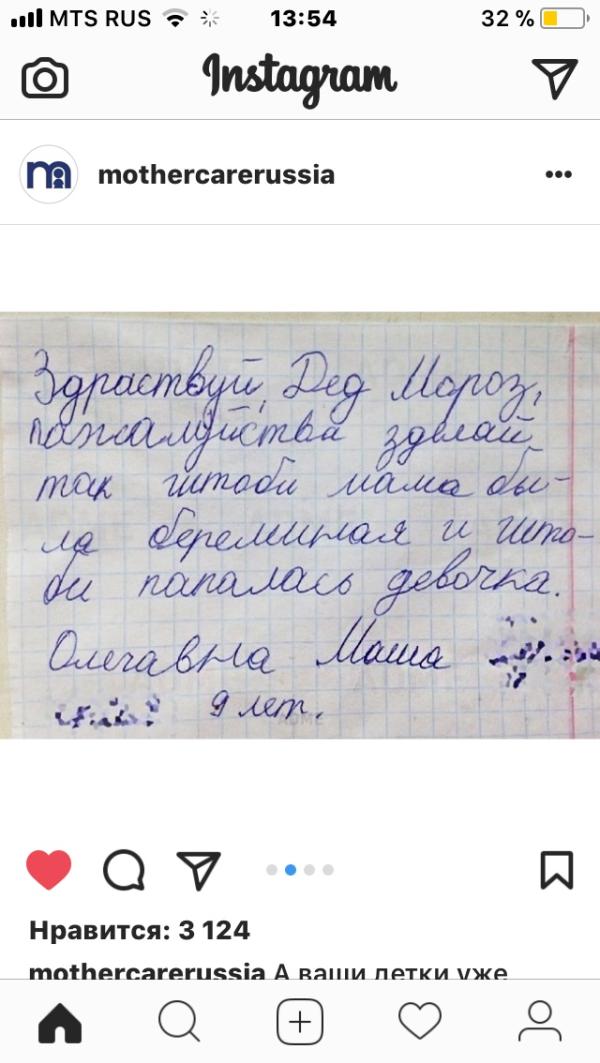 MTS RUS 13:54 32 %
Instagram
mothercarerussia
Здраствуй, Дед Мороз,
пажалуйства зделай
так штоби мама бы-
ла береминая и што-
би папалась девочка.
Маша
9 лет.
Нравится: 3 124
mothercarerussia А ваши детки уже